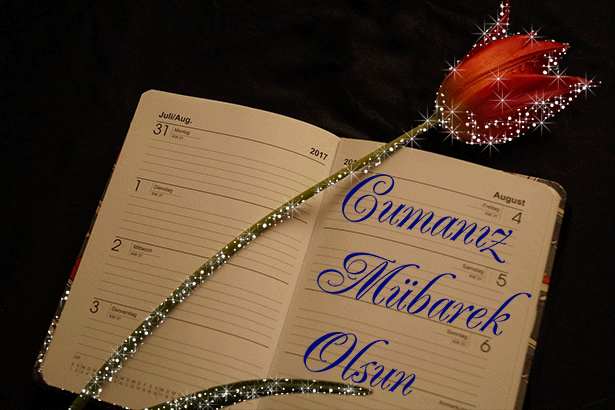 Juli/Aug.
31 Montag
2017
1 Dienstag
2 Mittwoch
3 Donnerstag
201
August
Freitag 4
Samstag 5
Sonntag 6
Cumanız
Mübarek
Olsun